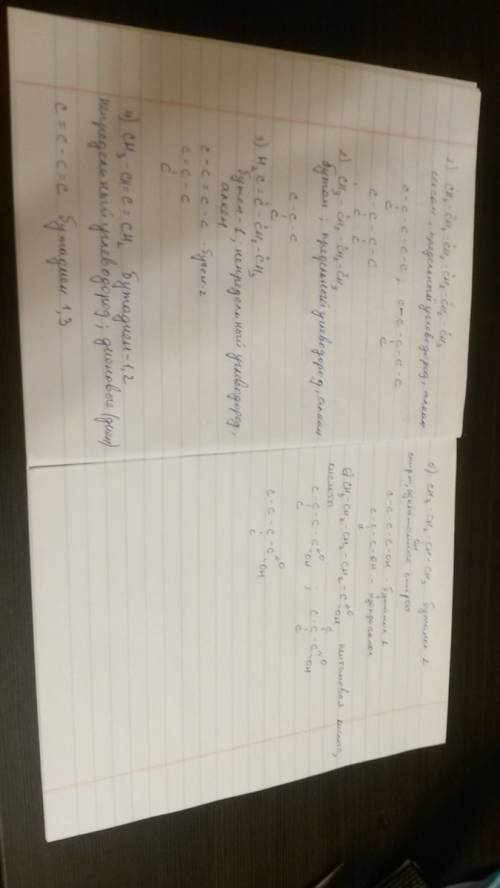 1) CH₃-CH₂-CH₂-CH₂-CH₂-CH₃
гексан, предельный углеводород, алкан
C-C-C-C-C ; C-C-C-C-C
C
C
C C
C-C-C-C
2) CH₃-CH₂-CH₂-CH₃
бутан; предельный углеводород, алкан
C-C-C
C
3) H₂C=C-CH₂-CH₃
бутен-1, непредельный углеводород,
алкен
C-C=C-C - бутен-2
C=C-C
C
4) CH₃-CH=C=CH₂ бутадиен-1,2
непредельный углеводород; диеновые (диен)
C=C-C=C бутадиен 1,3
5) CH₃-CH₂-CH-CH₃ бутанол 2
OH
спирт, одноатомные спирты
C-C-C-C-OH - бутанол 1
C-C-C-OH -
C
6) CH₃-CH₂-CH₂-CH₂-C=O-OH пентановая кислота,
кислоты
C-C-C-C=O-OH ; C-C-C=O-OH
C
C
C
C-C-C-C=O-OH
C